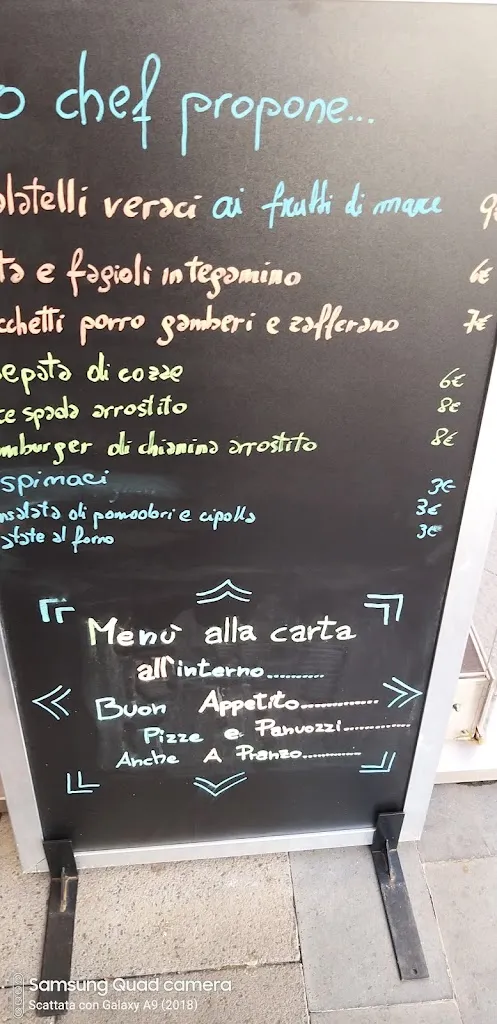 o chef propone...
alatelli veraci ai frutti di mare 9
ta e fagioli in tegamino 6€
cchetti porro gamberi e zafferano 7€
epata di cozze 6€
ce spada arrostito 8€
mburger di chianina arrostito 8€
spinaci 3€
nsalata di pomodori e cipolla 3€
atate al forno 3€
Menù alla carta
all'interno..........
Buon Appetito..............
Pizze e Panuozzi..............
Anche A Pranzo............
Samsung Quad camera
Scattata con Galaxy A9 (2018)